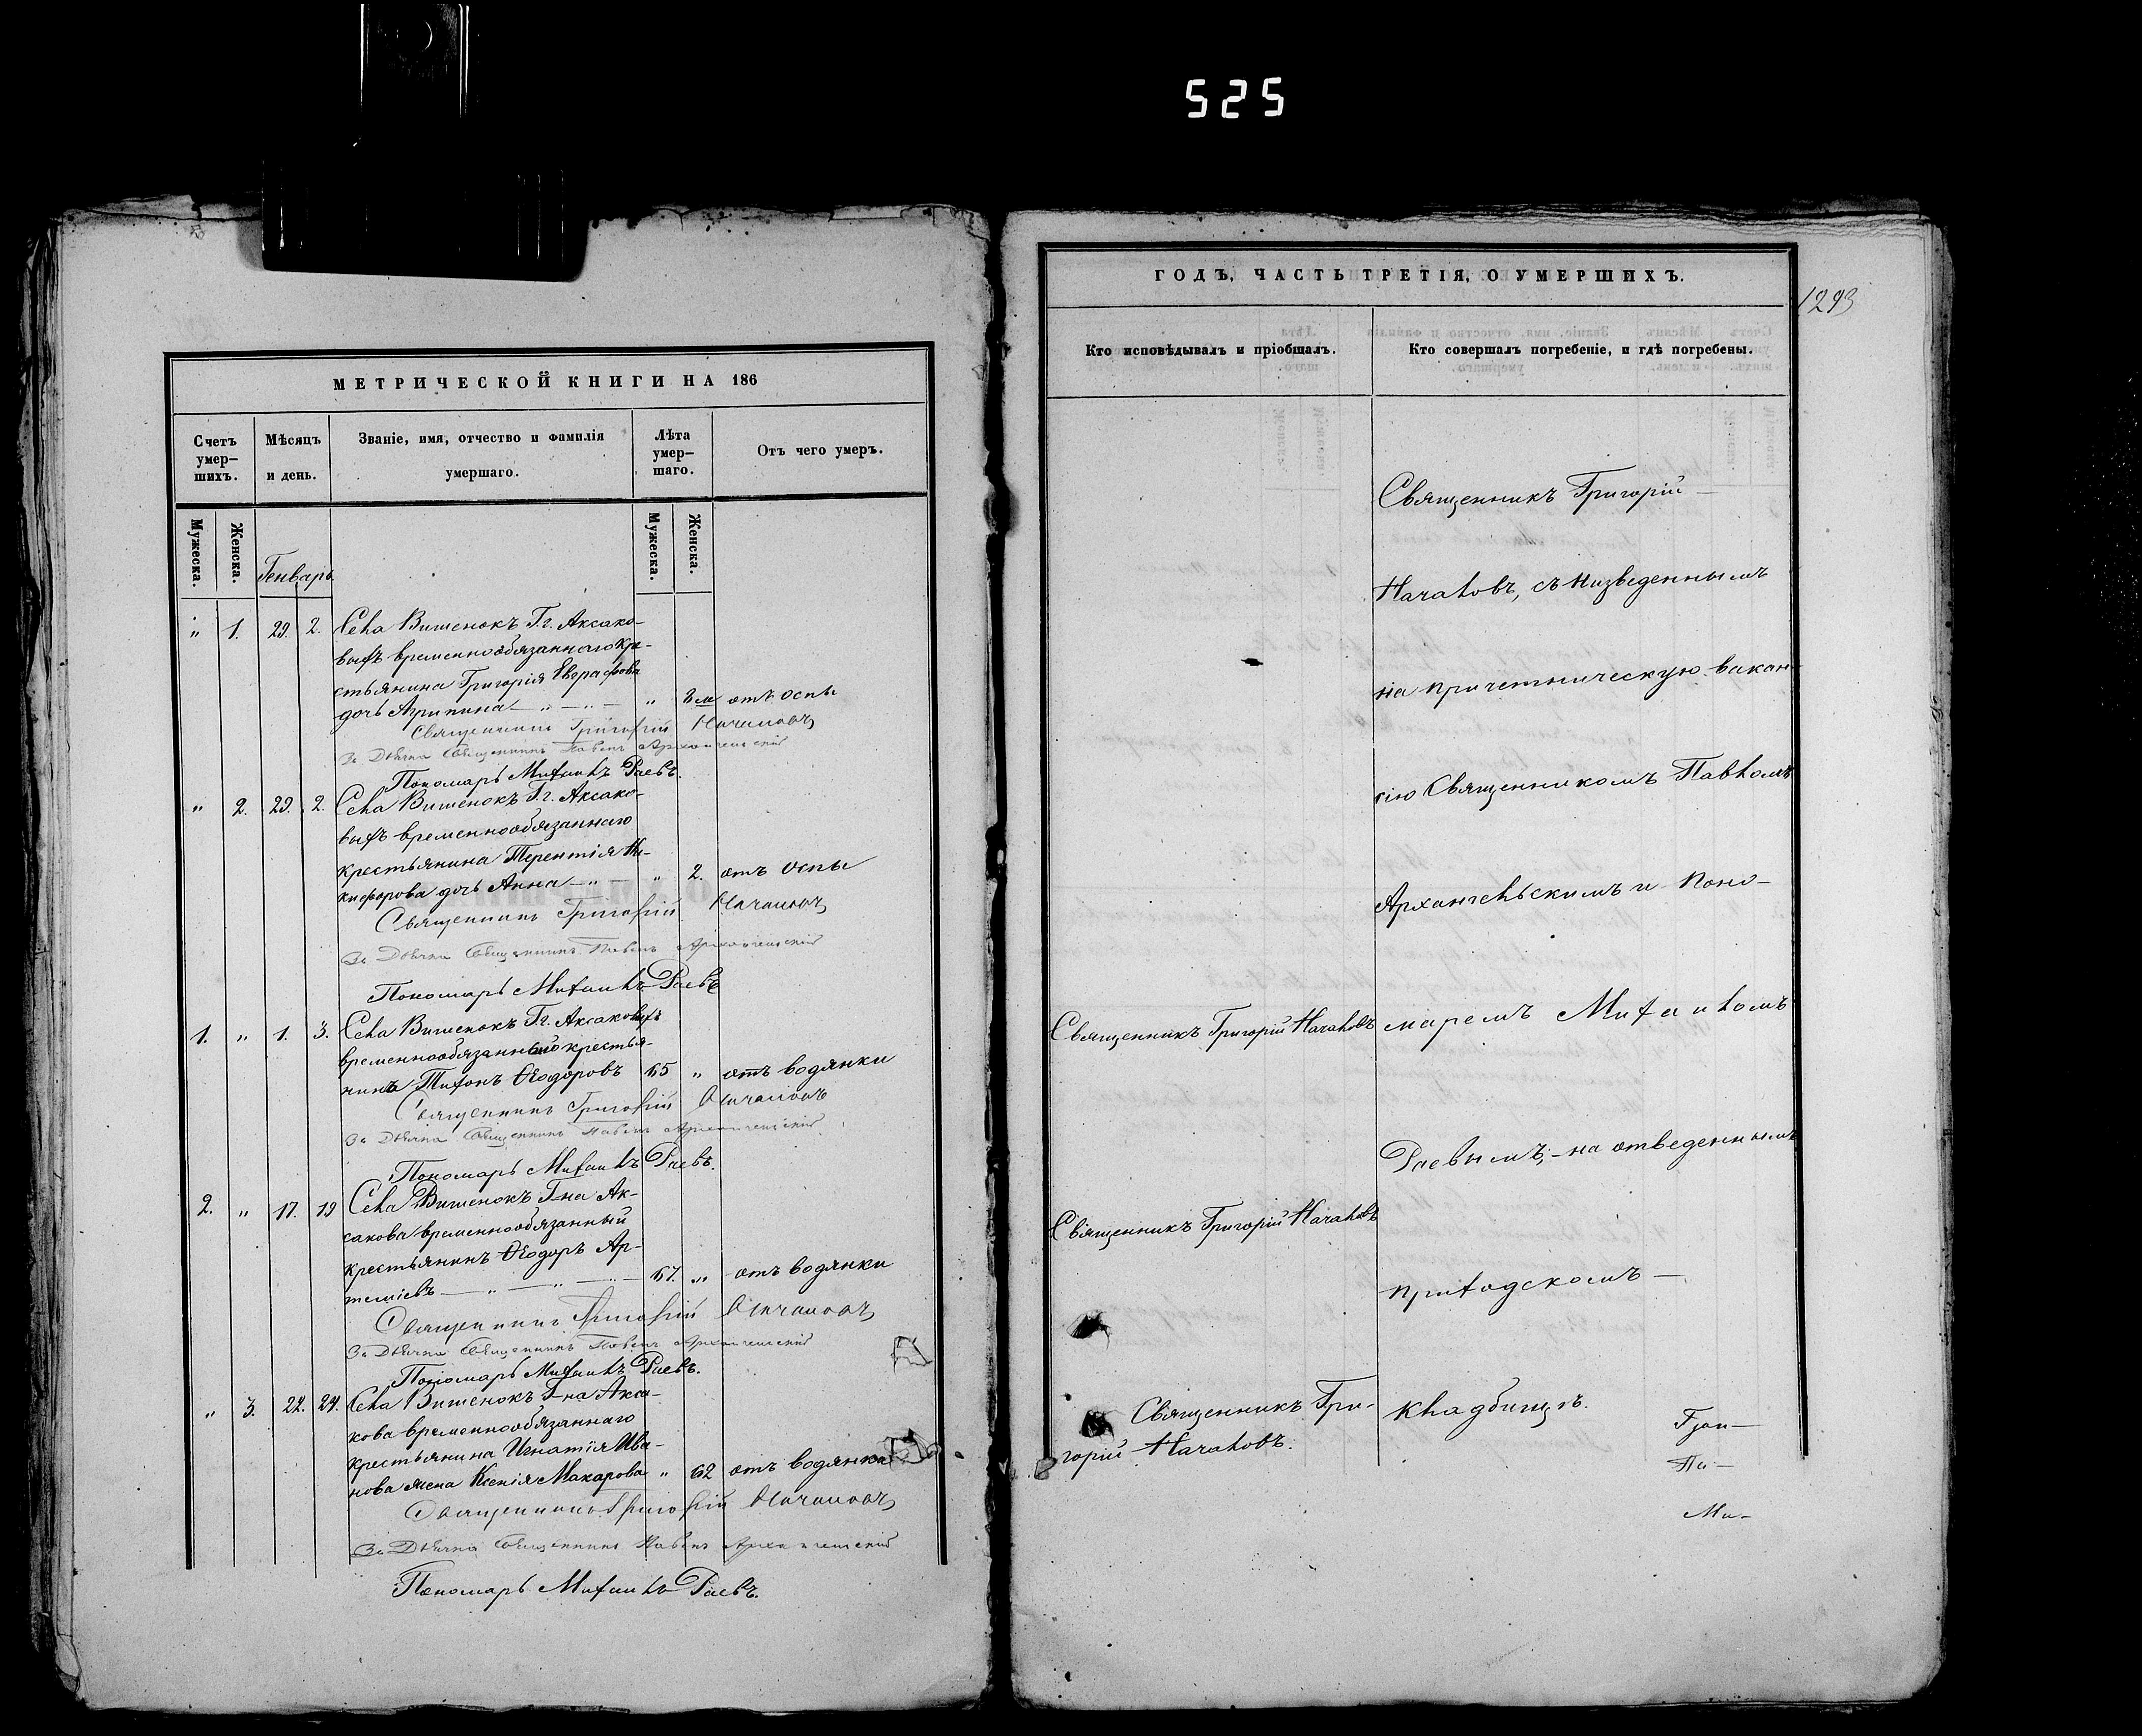 525
МЕТРИЧЕСКОЙ КНИГИ НА 186
Счетъ умер-шихъ.
Мѣсяцъ и день.
Званіе, имя, отчество и фамилія умершаго.
Лѣта умер-шаго.
Отъ чего умеръ.
Мужеска.
Женска.
Мужеска.
Женска.
Генварь
" 1. 29. 2. Села Вишенокъ Г.г. Аксако-
выхъ временнообязаннаго кре-
стьянина Григорія Евграфова
дочь Агрипина — " — " — " 3 м отъ оспы
Священникъ Григорій Началовъ
За Дьячка Священникъ Павелъ Архангельскій
Пономарь Михаилъ Раевъ.
" 2. 29. 2. Села Вишенокъ Г.г. Аксако-
выхъ временнообязаннаго
крестьянина Терентія Ни-
кифорова дочь Анна — " — " 2. отъ оспы
Священникъ Григорій Началовъ
За Дьячка Священникъ Павелъ Архангельскій
Пономарь Михаилъ Раевъ
1. " 1. 3. Села Вишенокъ Г.г. Аксаковыхъ
временнообязанный крестья-
нинъ Тихонъ Ѳеодоровъ 65 " отъ водянки
Священникъ Григорій Началовъ
За Дьячка Священникъ Павелъ Архангельскій
Пономарь Михаилъ Раевъ.
2. " 17. 19 Села Вишенокъ Г-на Ак-
сакова временнообязанный
крестьянинъ Ѳеодоръ Ар-
теміевъ — " — " — 67. " отъ водянки
Священникъ Григорій Началовъ
За Дьячка Священникъ Павелъ Архангельскій
Пономарь Михаилъ Раевъ.
" 3. 22. 24. Села Вишенокъ Г-на Акса-
кова временнообязаннаго
крестьянина Игнатія Ива-
нова жена Ксенія Макарова " 62 отъ водянки
Священникъ Григорій Началовъ
За Дьячка Священникъ Павелъ Архангельскій
Пономарь Михаилъ Раевъ.
ГОДЪ, ЧАСТЬ ТРЕТІЯ, О УМЕРШИХЪ.
1293
Кто исповѣдывалъ и пріобщалъ.
Кто совершалъ погребеніе, и гдѣ погребены.
Священникъ Григорій —
Началовъ, съ низведеннымъ
на причетническую вакан-
сію Священникомъ Павломъ
Архангельскимъ и Поно-
Священникъ Григорій Началовъ
маремъ Михаиломъ
Раевымъ; - на отведенномъ
Священникъ Григорій Началовъ
приходскомъ —
Священникъ Гри-
горій Началовъ.
кладбищѣ.
Гри —
Па —
Ми -